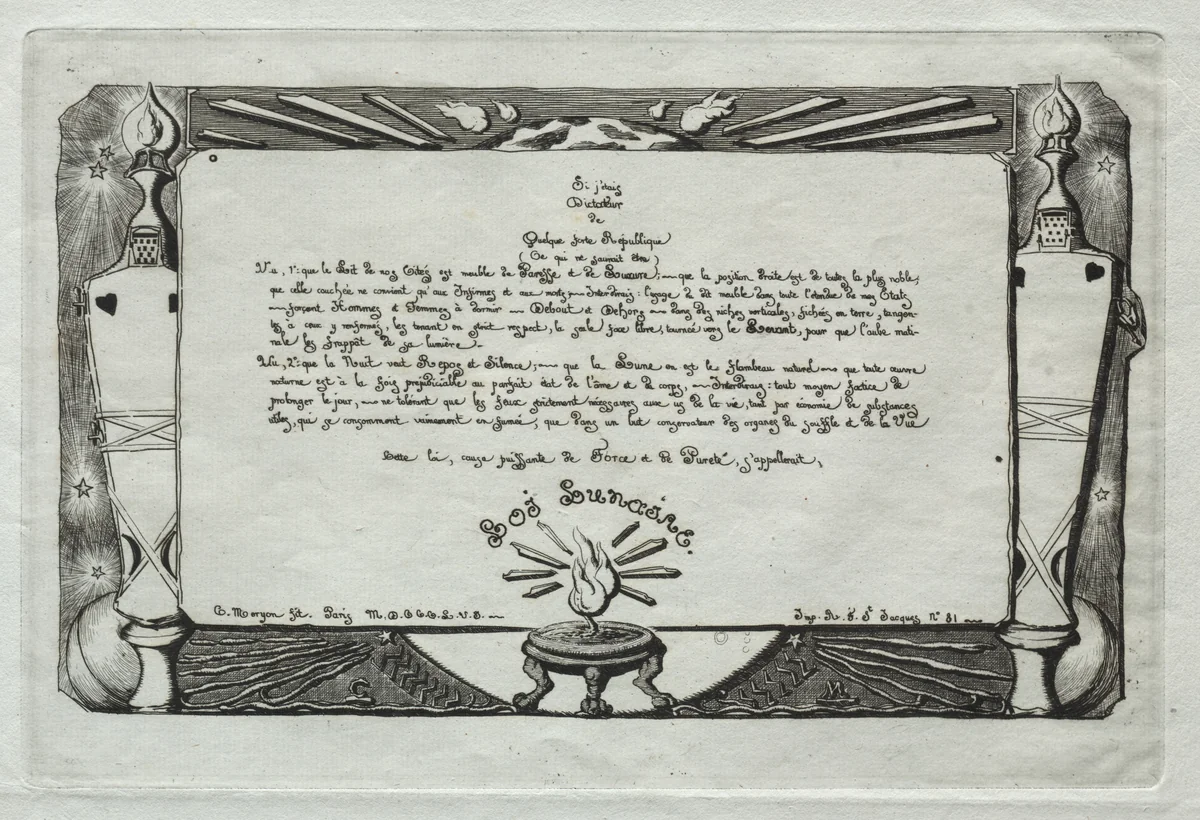 Si j'étais
Dictateur
de
Quelque forte République
(Ce qui ne saurait être)
Vu, 1º: que le Lit de nos Cités est meuble de Paresse et de Luxure; — que la position droite est de toutes la plus noble,
que celle couchée ne convient qu'aux Infirmes et aux morts — Interdirais: l'usage du dit meuble dans toute l'étendue de nos Etats
— forçant Hommes et Femmes à dormir — Debout et Dehors — dans des niches verticales, fichées en terre, tangen-
tes à ceux y renfermés, les tenant en strict respect, la seule face libre, tournée vers le Levant, pour que l'aube mati-
nale les frappât de sa lumière. –
Vu, 2º: que la Nuit veut Repos et Silence; — que la Lune en est le flambeau naturel — que toute œuvre
nocturne est à la fois préjudiciable au parfait état de l'âme et du corps, — Interdirais: tout moyen factice de
prolonger le jour, — ne tolérant que les feux strictement nécessaires aux us de la vie, tant par économie de substances
utiles, qui se consomment vainement en fumée, que dans un but conservateur des organes du souffle et de la Vue
Cette loi, cause puissante de Force et de Pureté, s'appellerait,
Loi Lunaire.
C. Meryon fit. Paris M.D.C.C.C.L.V.I. — Imp. R. N. St Jacques Nº 81 —
C M